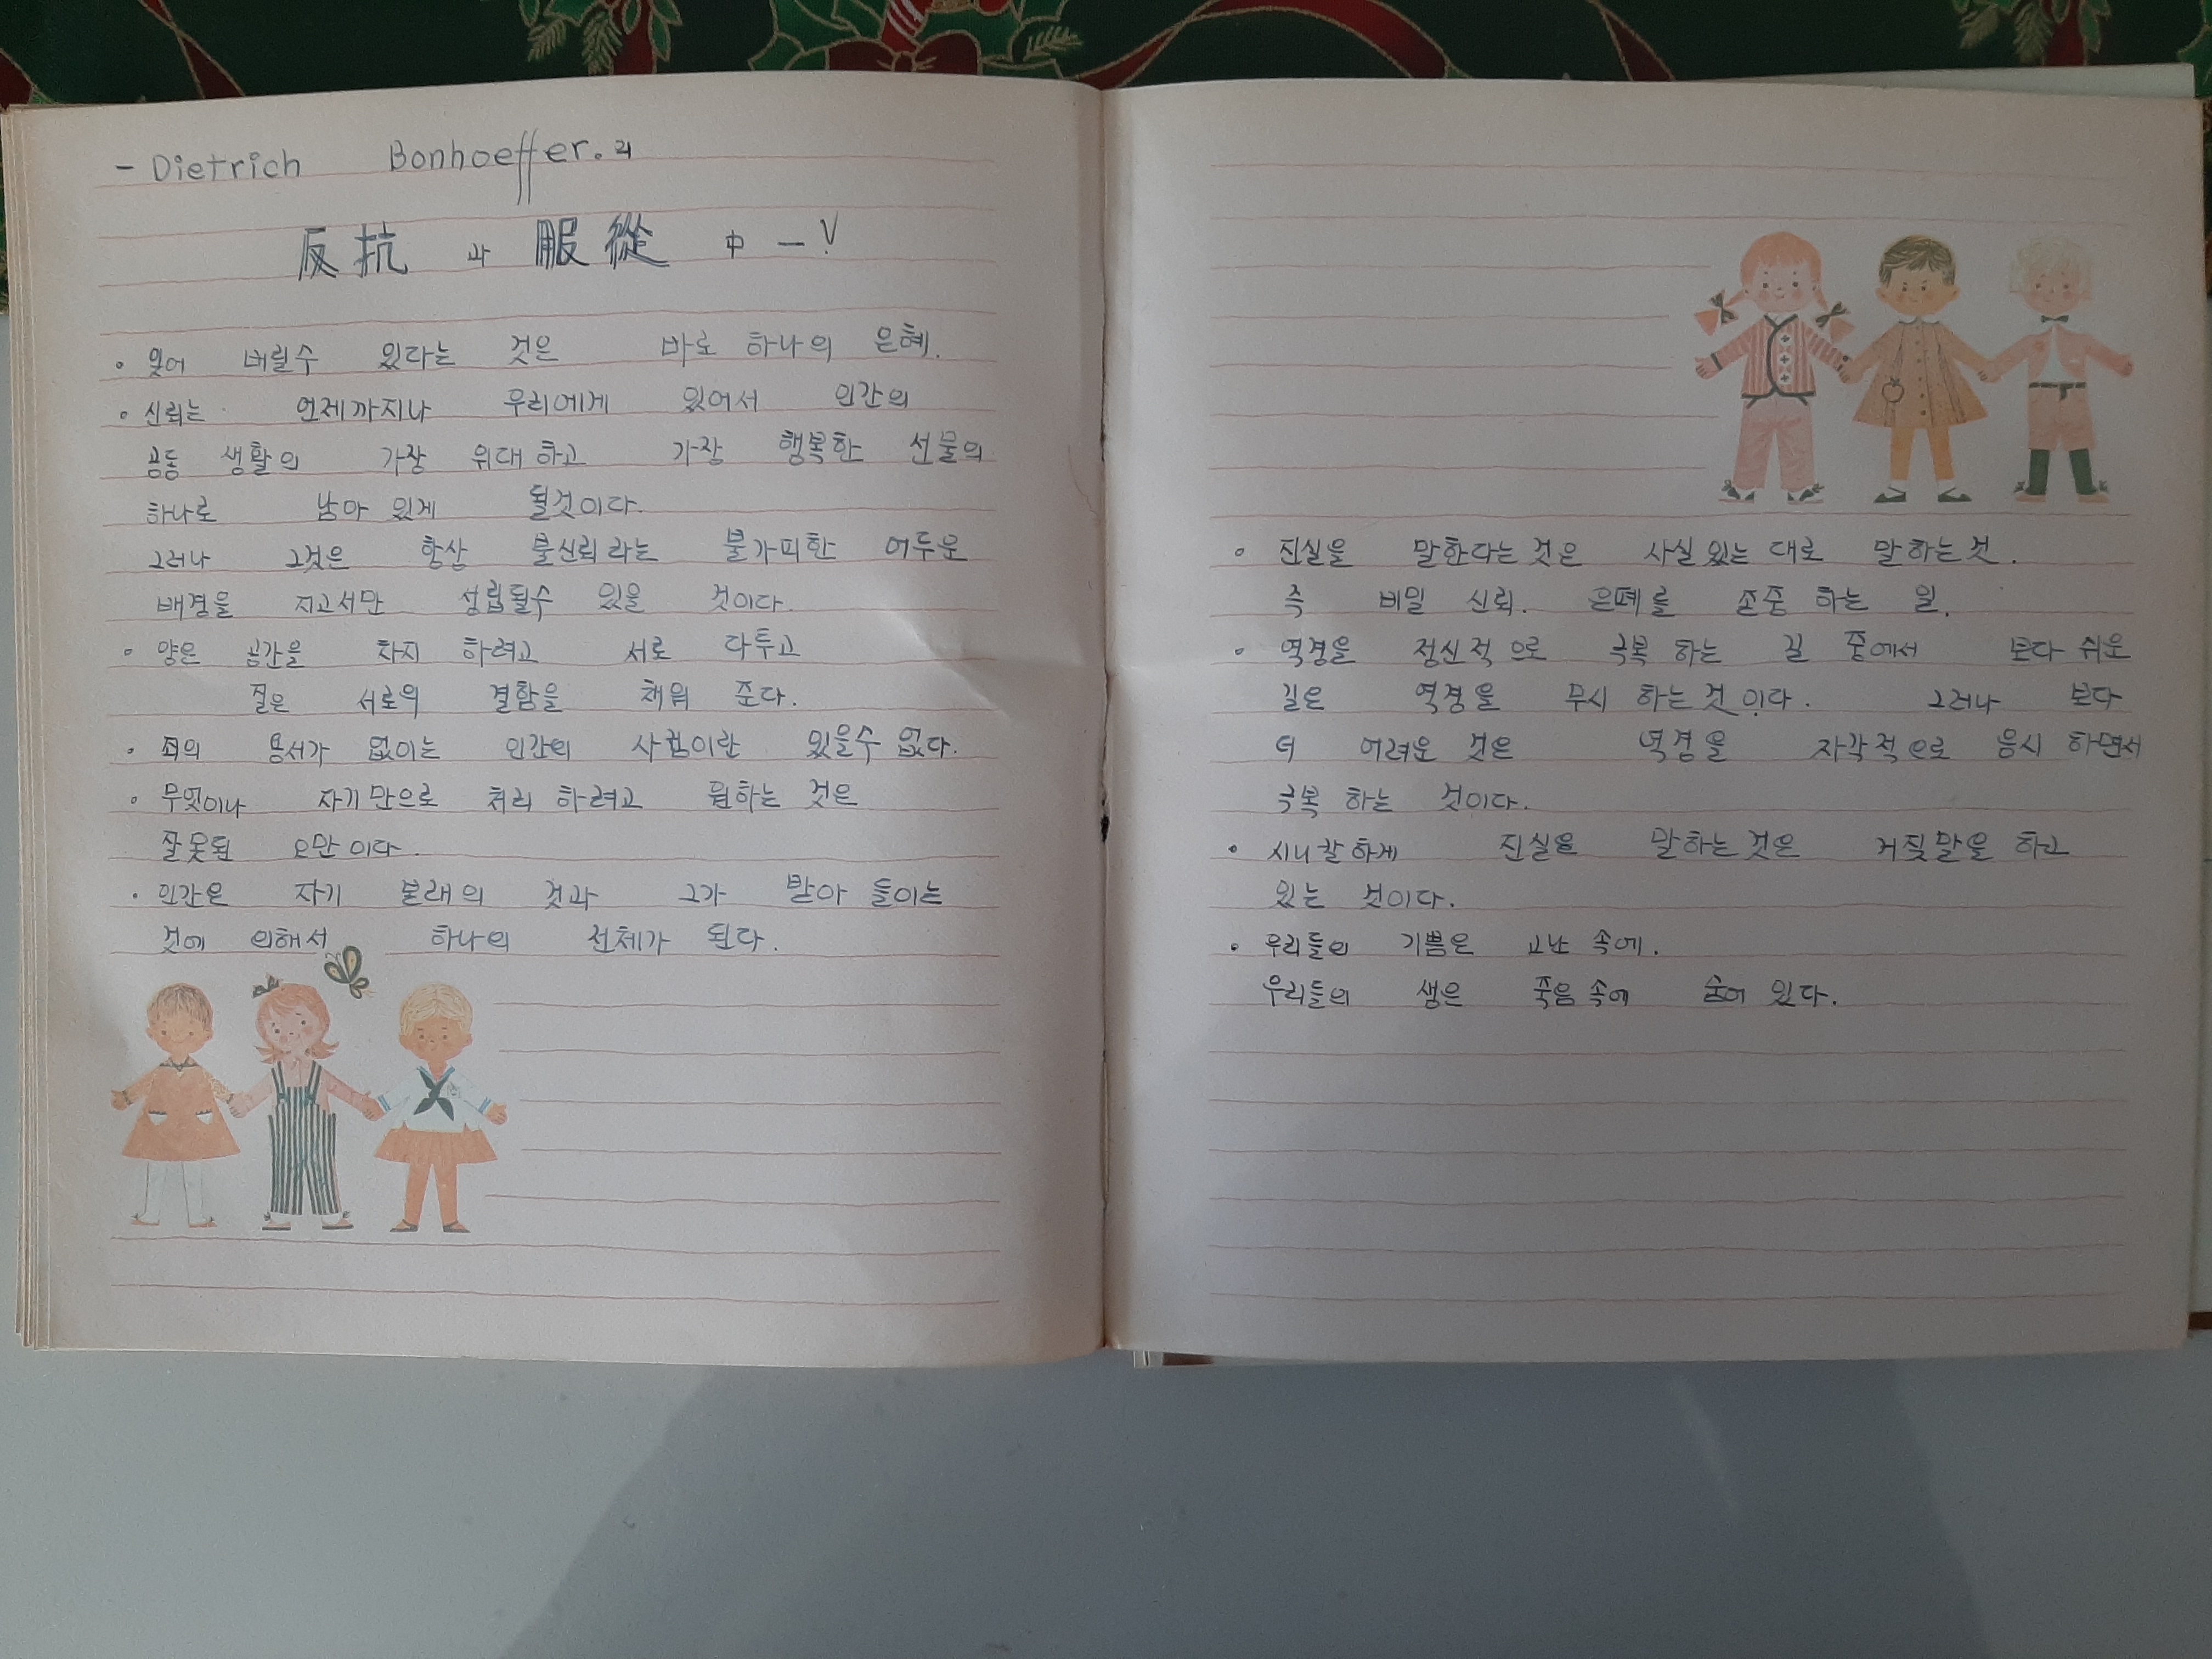 - Dietrich Bonhoeffer. 의
反抗 과 服從 中 -!
• 잊어 버릴수 있다는 것은 바로 하나의 은혜.
• 신뢰는 언제까지나 우리에게 있어서 인간의
공동 생활의 가장 위대하고 가장 행복한 선물의
하나로 남아 있게 될것이다.
그러나 그것은 항상 불신뢰라는 불가피한 어두운
배경을 지고서만 성립될수 있을 것이다.
• 양은 공간을 차지 하려고 서로 다투고
질은 서로의 결함을 채워 준다.
• 죄의 용서가 없이는 인간의 사귐이란 있을수 없다.
• 무엇이나 자기만으로 처리 하려고 원하는 것은
잘못된 오만이다.
• 인간은 자기 본래의 것과 그가 받아 들이는
것에 의해서 하나의 전체가 된다.
• 진실을 말한다는 것은 사실 있는 대로 말하는 것.
즉 비밀 신뢰. 은폐를 존중 하는 일.
• 역경을 정신적으로 극복 하는 길 중에서 보다 쉬운
길은 역경을 무시 하는 것이다. 그러나 보다
더 어려운 것은 역경을 자각적으로 응시 하면서
극복 하는 것이다.
• 시니칼하게 진실을 말하는 것은 거짓말을 하고
있는 것이다.
• 우리들의 기쁨은 고난 속에.
우리들의 생은 죽음 속에 숨어 있다.